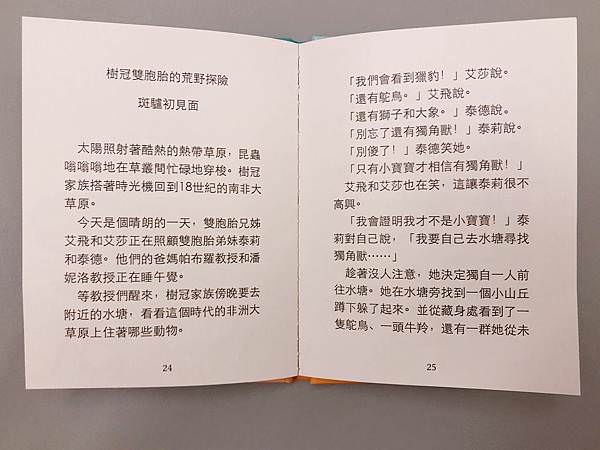 樹冠雙胞胎的荒野探險
斑驢初見面
太陽照射著酷熱的熱帶草原，昆蟲
嗡嗡嗡地在草叢間忙碌地穿梭。樹冠
家族搭著時光機回到18世紀的南非大
草原。
今天是個晴朗的一天，雙胞胎兄姊
艾飛和艾莎正在照顧雙胞胎弟妹泰莉
和泰德。他們的爸媽帕布羅教授和潘
妮洛教授正在睡午覺。
等教授們醒來，樹冠家族傍晚要去
附近的水塘，看看這個時代的非洲大
草原上住著哪些動物。
24
「我們會看到獵豹！」艾莎說。
「還有鴕鳥。」艾飛說。
「還有獅子和大象。」泰德說。
「別忘了還有獨角獸！」泰莉說。
「別傻了！」泰德笑她。
「只有小寶寶才相信有獨角獸！」
艾飛和艾莎也在笑，這讓泰莉很不
高興。
「我會證明我才不是小寶寶！」泰
莉對自己說，「我要自己去水塘尋找
獨角獸⋯⋯」
趁著沒人注意，她決定獨自一人前
往水塘。她在水塘旁找到一個小山丘
蹲下躲了起來。並從藏身處看到了一
隻鴕鳥、一頭牛羚，還有一群她從未
25